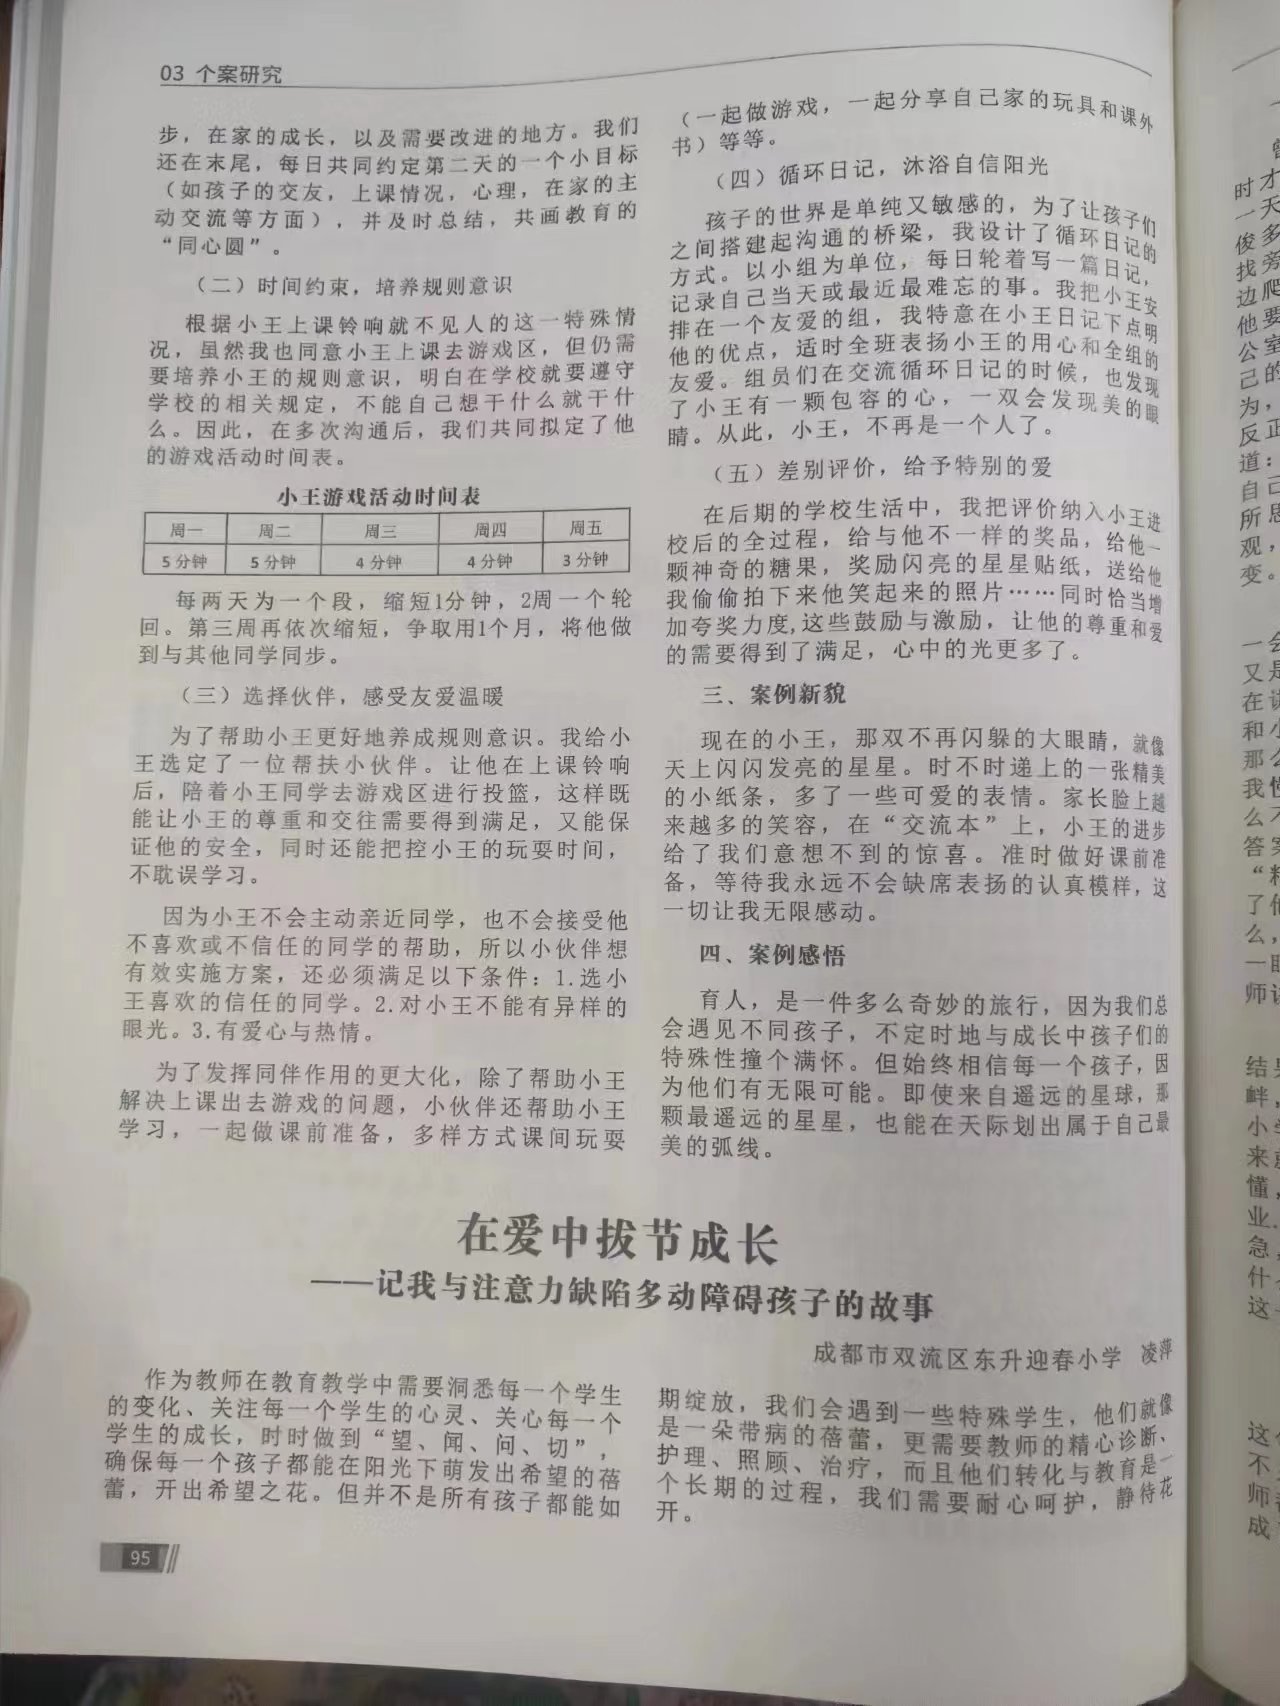 03 个案研究
步，在家的成长，以及需要改进的地方。我们
还在末尾，每日共同约定第二天的一个小目标
（如孩子的交友，上课情况，心理，在家的主
动交流等方面），并及时总结，共画教育的
“同心圆”。
（二）时间约束，培养规则意识
根据小王上课铃响就不见人的这一特殊情
况，虽然我也同意小王上课去游戏区，但仍需
要培养小王的规则意识，明白在学校就要遵守
学校的相关规定，不能自己想干什么就干什
么。因此，在多次沟通后，我们共同拟定了他
的游戏活动时间表。
小王游戏活动时间表
周一 周二 周三 周四 周五
5分钟 5分钟 4分钟 4分钟 3分钟
每两天为一个段，缩短1分钟，2周一个轮
回。第三周再依次缩短，争取用1个月，将他做
到与其他同学同步。
（三）选择伙伴，感受友爱温暖
为了帮助小王更好地养成规则意识。我给小
王选定了一位帮扶小伙伴。让他在上课铃响
后，陪着小王同学去游戏区进行投篮，这样既
能让小王的尊重和交往需要得到满足，又能保
证他的安全，同时还能把控小王的玩耍时间，
不耽误学习。
因为小王不会主动亲近同学，也不会接受他
不喜欢或不信任的同学的帮助，所以小伙伴想
有效实施方案，还必须满足以下条件：1.选小
王喜欢的信任的同学。2.对小王不能有异样的
眼光。3.有爱心与热情。
为了发挥同伴作用的更大化，除了帮助小王
解决上课出去游戏的问题，小伙伴还帮助小王
学习，一起做课前准备，多样方式课间玩耍
（一起做游戏，一起分享自己家的玩具和课外
书）等等。
（四）循环日记，沐浴自信阳光
孩子的世界是单纯又敏感的，为了让孩子们
之间搭建起沟通的桥梁，我设计了循环日记的
方式。以小组为单位，每日轮着写一篇日记，
记录自己当天或最近最难忘的事。我把小王安
排在一个友爱的组，我特意在小王日记下点明
他的优点，适时全班表扬小王的用心和全组的
友爱。组员们在交流循环日记的时候，也发现
了小王有一颗包容的心，一双会发现美的眼
睛。从此，小王，不再是一个人了。
（五）差别评价，给予特别的爱
在后期的学校生活中，我把评价纳入小王进
校后的全过程，给与他不一样的奖品，给他一
颗神奇的糖果，奖励闪亮的星星贴纸，送给他
我偷偷拍下来他笑起来的照片……同时恰当增
加夸奖力度,这些鼓励与激励，让他的尊重和爱
的需要得到了满足，心中的光更多了。
三、案例新貌
现在的小王，那双不再闪躲的大眼睛，就像
天上闪闪发亮的星星。时不时递上的一张精美
的小纸条，多了一些可爱的表情。家长脸上越
来越多的笑容，在“交流本”上，小王的进步
给了我们意想不到的惊喜。准时做好课前准
备，等待我永远不会缺席表扬的认真模样，这
一切让我无限感动。
四、案例感悟
育人，是一件多么奇妙的旅行，因为我们总
会遇见不同孩子，不定时地与成长中孩子们的
特殊性撞个满怀。但始终相信每一个孩子，因
为他们有无限可能。即使来自遥远的星球，那
颗最遥远的星星，也能在天际划出属于自己最
美的弧线。
在爱中拔节成长
——记我与注意力缺陷多动障碍孩子的故事
成都市双流区东升迎春小学 凌萍
作为教师在教育教学中需要洞悉每一个学生
的变化、关注每一个学生的心灵、关心每一个
学生的成长，时时做到“望、闻、问、切”，
确保每一个孩子都能在阳光下萌发出希望的蓓
蕾，开出希望之花。但并不是所有孩子都能如
期绽放，我们会遇到一些特殊学生，他们就像
是一朵带病的蓓蕾，更需要教师的精心诊断、
护理、照顾、治疗，而且他们转化与教育是一
个长期的过程，我们需要耐心呵护，静待花
开。
95
时才
一天
俊多
找旁
边爬
他要
公室
己的
为，
反正
道：
自己
所思
观，
变。
一会
又是
在
和小
那么
我
么不
答案
“精
了他
么，
一眼
师
结果
畔，
小学
来
懂，
业.
急，
什
这
不
师
成